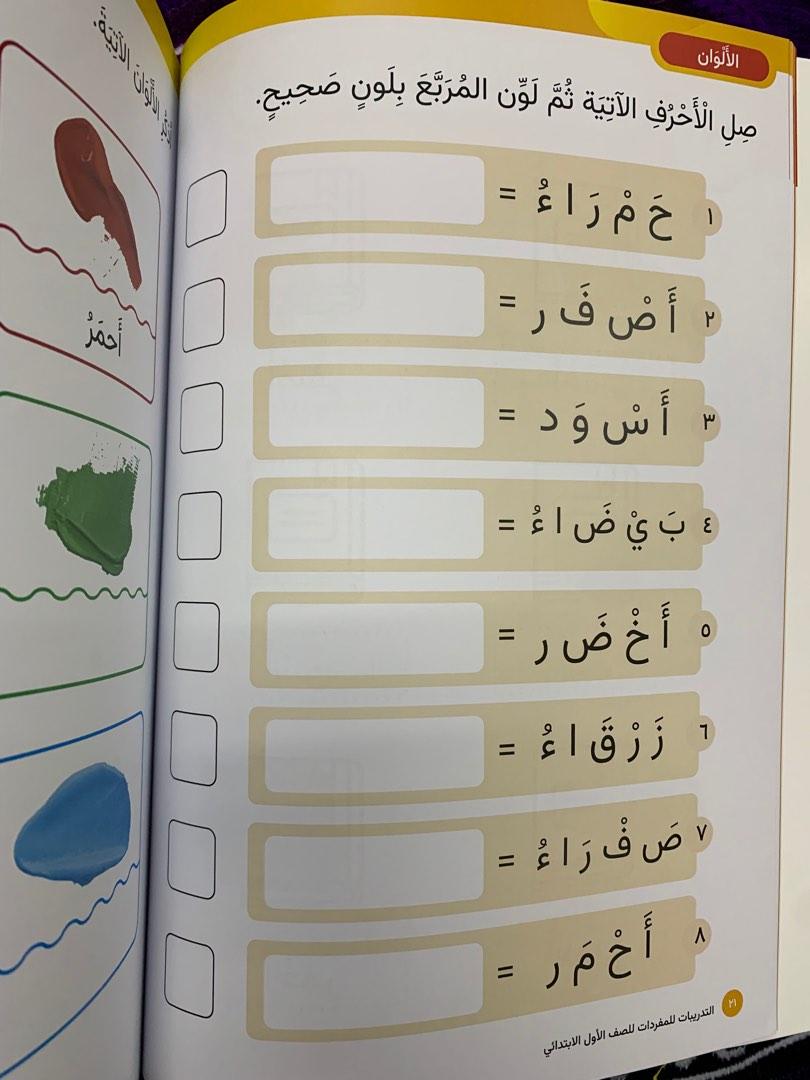 الأَلْوَان
صِلِ الْأَحْرُفِ الآتِيَة ثُمَّ لَوِّن المُرَبَّعَ بِلَونٍ صَحِيحٍ.
١ حَ مْ رَ ا ءُ =
٢ أَ صْ فَ ر =
٣ أَ سْ وَ د =
٤ بَ يْ ضَ ا ءُ =
٥ أَ خْ ضَ ر =
٦ زَ رْ قَ ا ءُ =
٧ صَ فْ رَ ا ءُ =
٨ أَ حْ مَ ر =
٢١ التدريبات للمفردات للصف الأول الابتدائي
الأَلْوَانَ الآتِيَةَ.
أَحمَرُ